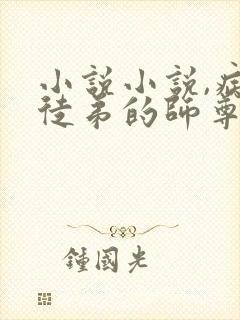 小說小說,病
徒弟的師尊
鍾國光